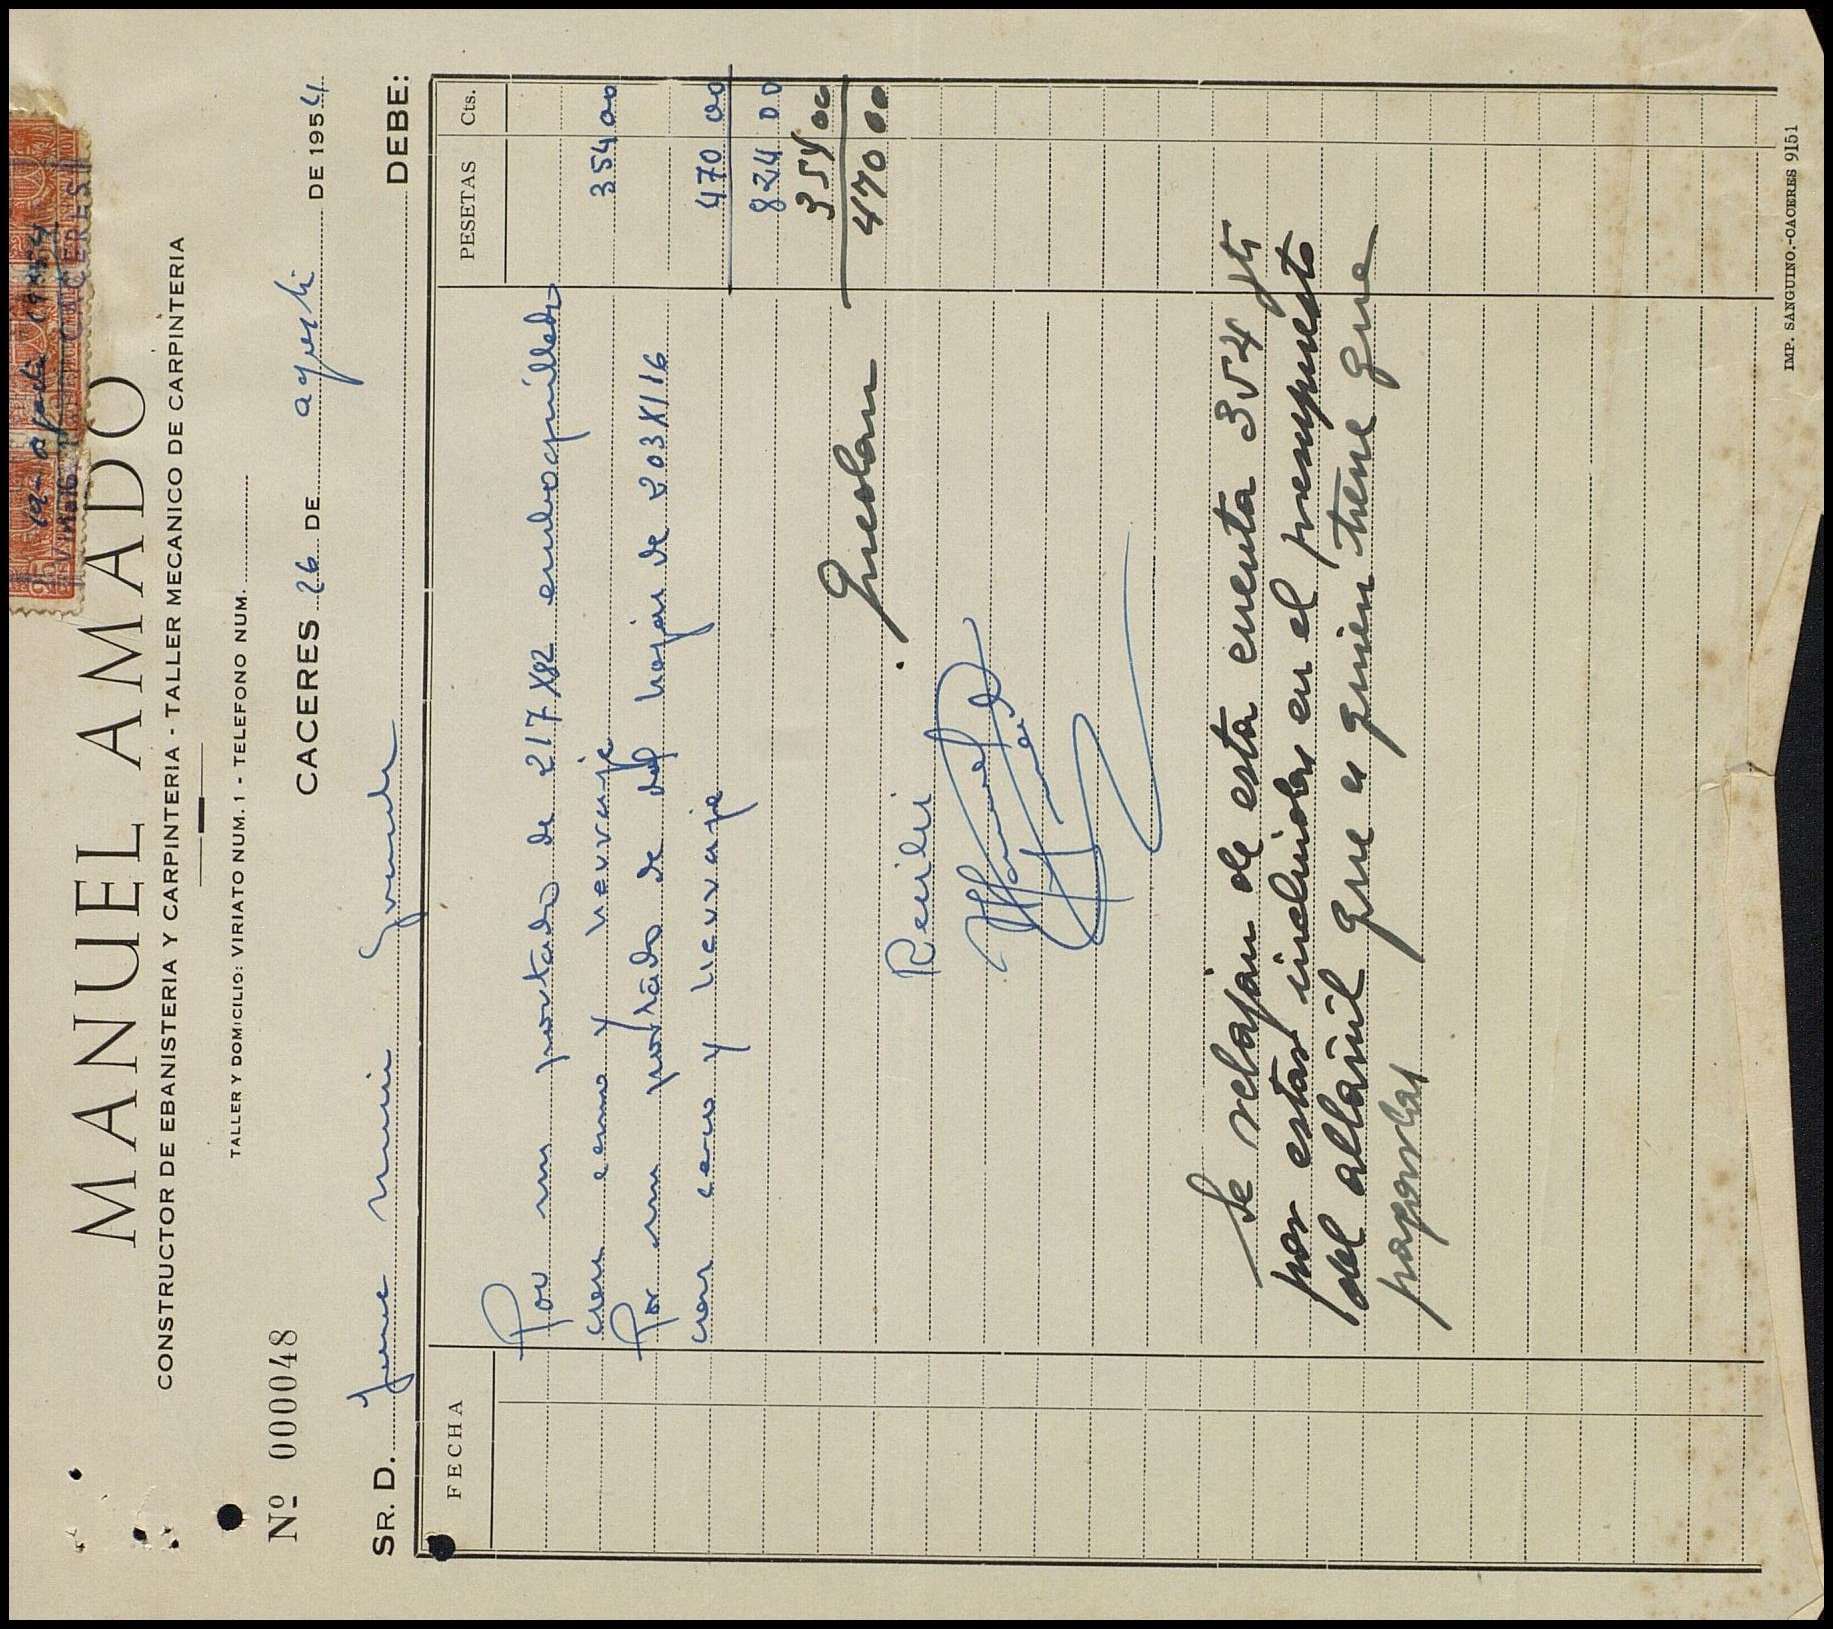 MANUEL AMADO
CONSTRUCTOR DE EBANISTERIA Y CARPINTERIA - TALLER MECANICO DE CARPINTERIA
TALLER Y DOMICILIO: VIRIATO NUM. 1 - TELEFONO NUM.
Nº 000048
CACERES 26 DE agosto DE 1954
SR. D.
DEBE:
FECHA PESETAS Cts.
Por un portado de 217 X 82 emboquillado
con cerco y herraje 354 00
Por un portado de dos hojas de 203 X 116
con cerco y herraje 470 00
824 00
354 00
Quedan 470 00
Recibi
Manuel Amado
Se relajan de esta cuenta 354 pts
por estar incluidas en el presupuesto
del albañil que es quien tiene que
pagarlas
IMP. SANGUINO.-CACERES 9151
CACERES